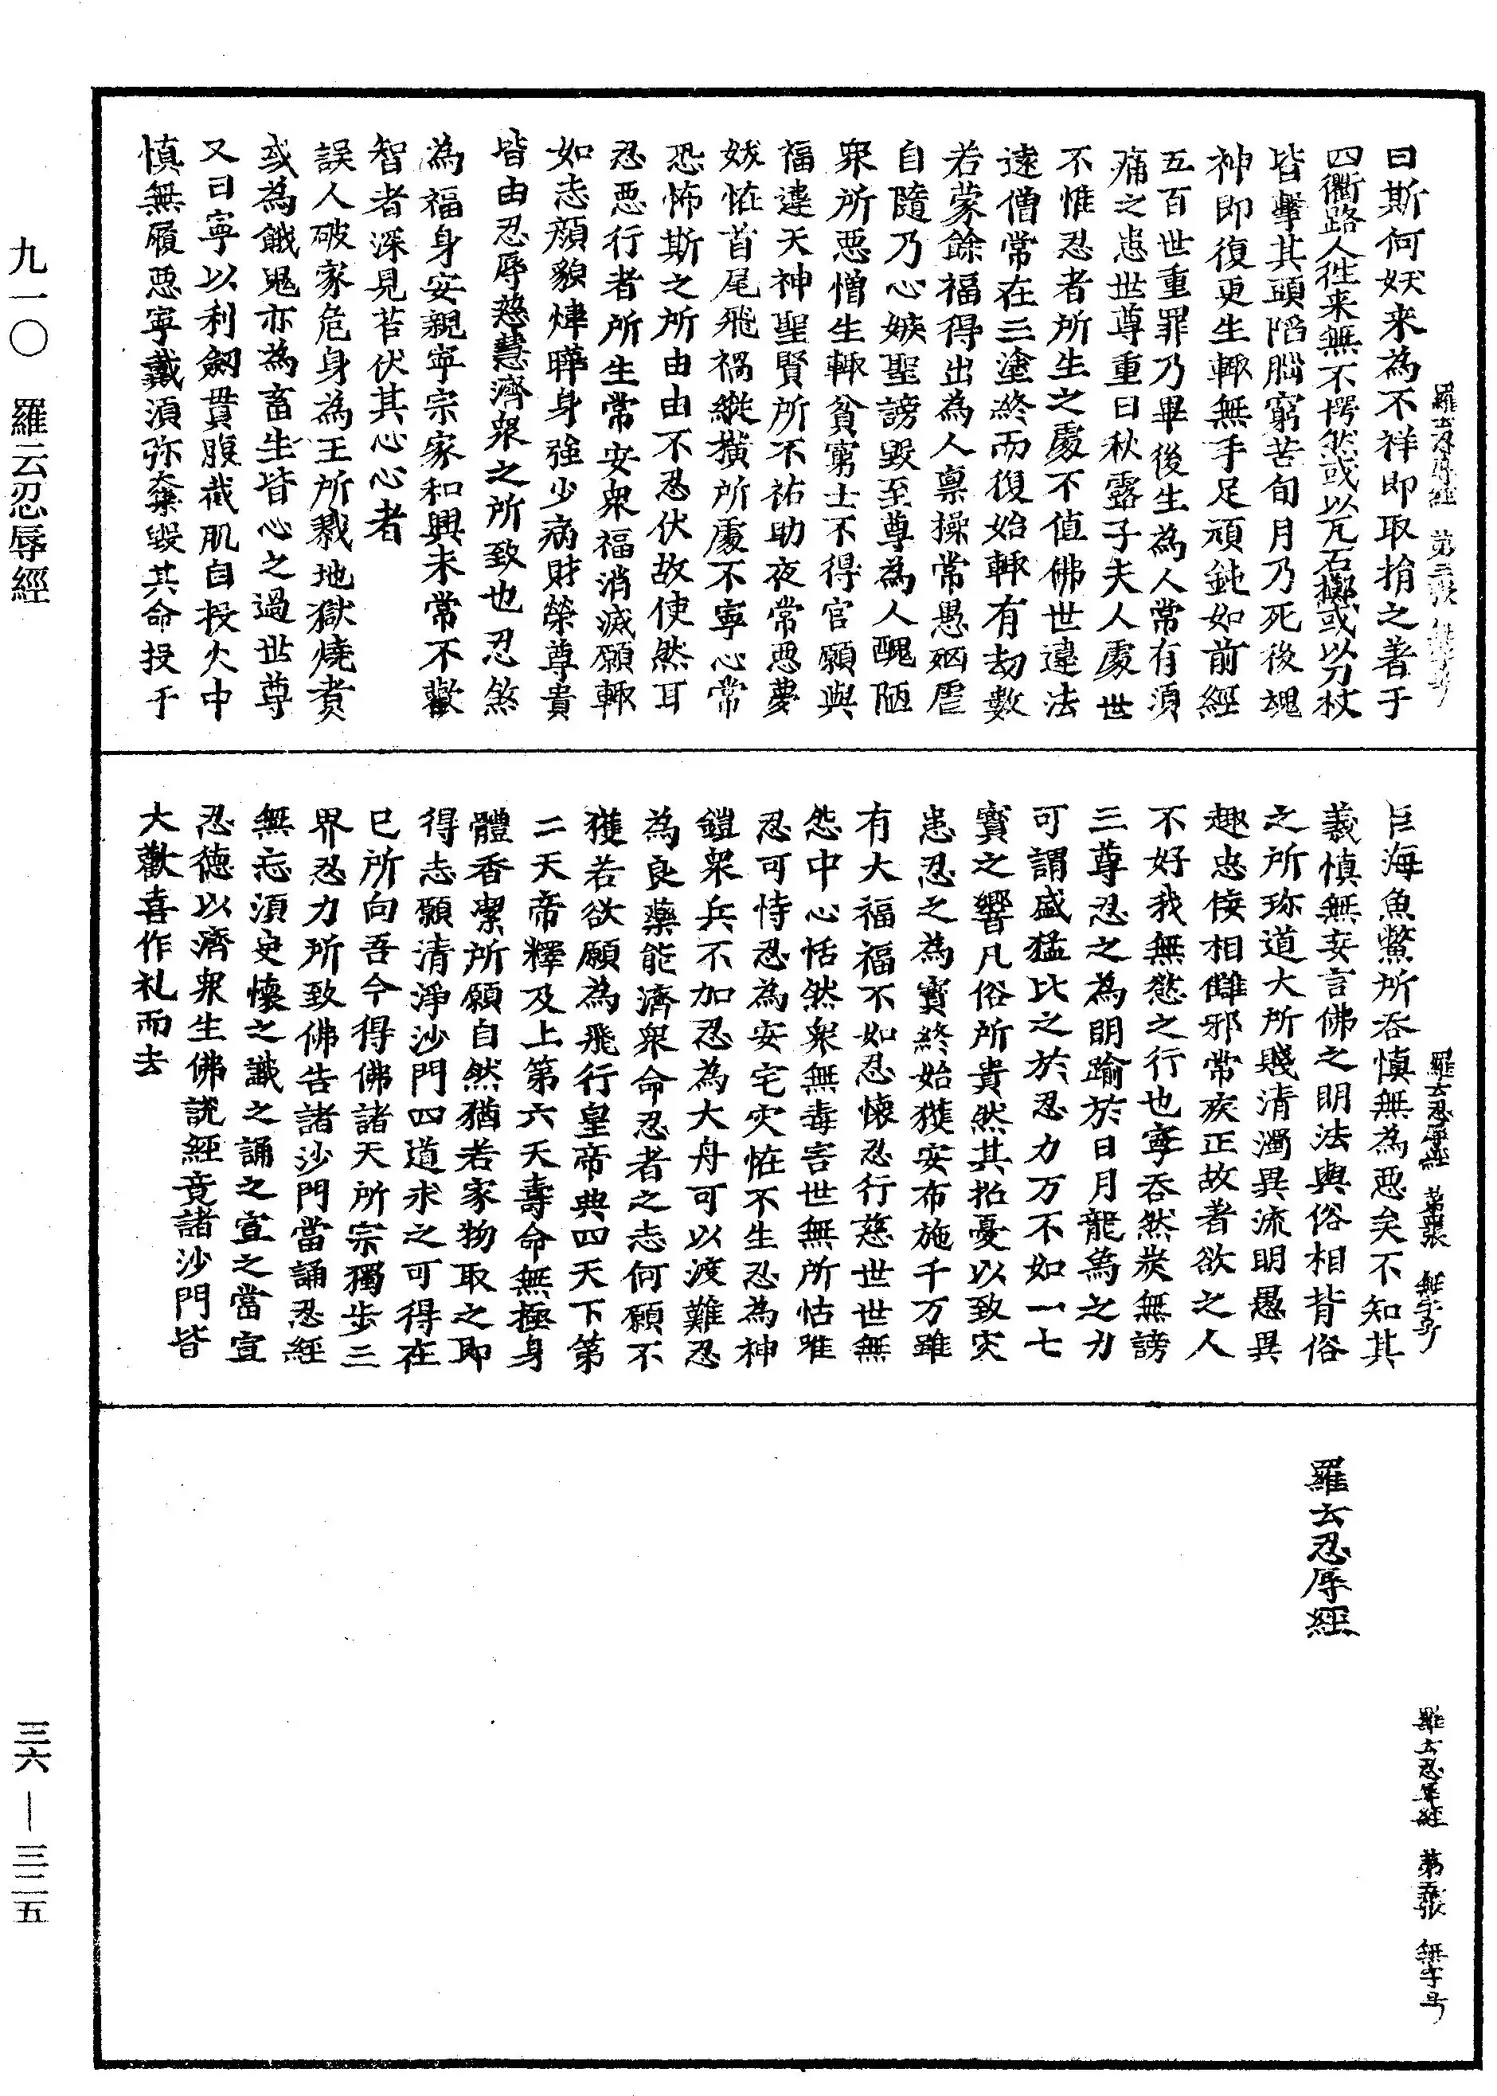 羅云忍辱經　第三張　無字号
曰斯何妖来為不祥即取捐之著于
四衢路人往来無不愕然或以瓦石擲或以刀杖
皆擊其頭陷腦窮苦旬月乃死後魂
神即復更生輙無手足頑鈍如前經
五百世重罪乃畢後生為人常有頭
痛之患世尊重曰秋露子夫人處世
不惟忍者所生之處不值佛世違法
遠僧常在三塗終而復始輙有劫數
若蒙餘福得出為人稟操常愚凶虐
自隨乃心嫉聖謗毀至尊為人醜陋
衆所惡憎生輙貧窮士不得官願與
福違天神聖賢所不祐助夜常惡夢
妖恠首尾飛禍縱橫所處不寧心常
恐怖斯之所由由不忍伏故使然耳
忍惡行者所生常安衆福消滅願輙
如志顔貌煒曄身強少病財榮尊貴
皆由忍辱慈慧濟衆之所致也忍煞
為福身安親寧宗家和興未常不歡
智者深見苔伏其心心者
誤人破家危身為王所戮地獄燒煑
或為餓鬼亦為畜生皆心之過世尊
又曰寧以利劔貫腹截肌自投火中
慎無履惡寧戴須弥棄毀其命投于
羅云忍辱經　第四張　無字号
巨海魚鱉所吞慎無為惡矣不知其
義慎無妄言佛之明法與俗相背俗
之所珎道之所賤清濁異流明愚異
趣忠佞相雔邪常疾正故者欲之人
不好我無慾之行也寧吞然炭無謗
三尊忍之為明踰於日月龍為之力
可謂盛猛比之於忍力万不如一七
寳之響凡俗所貴然其招憂以致灾
患忍之為寳終始獲安布施千万雖
有大福福不如忍懷忍行慈世世無
怨中心恬然衆無毒害世無所怙唯
忍可恃忍為安宅灾恠不生忍為神
鎧衆兵不加忍為大舟可以渡難忍
為良藥能濟衆命忍者之志何願不
獲若欲願為飛行皇帝典四天下第
二天帝釋及上第六天壽命無極身
體香潔所願自然猶若家物取之即
得志願清淨沙門四道求之可得在
巳所向吾今得佛諸天所宗獨步三
界忍力所致佛告諸沙門當誦忍經
無忘須臾懷之識之誦之宣之當宣
忍德以濟衆生佛說經竟諸沙門皆
大歡喜作礼而去
羅云忍辱經　第五張　無字号
羅云忍辱經
九一〇　羅云忍辱經
三六—三二五